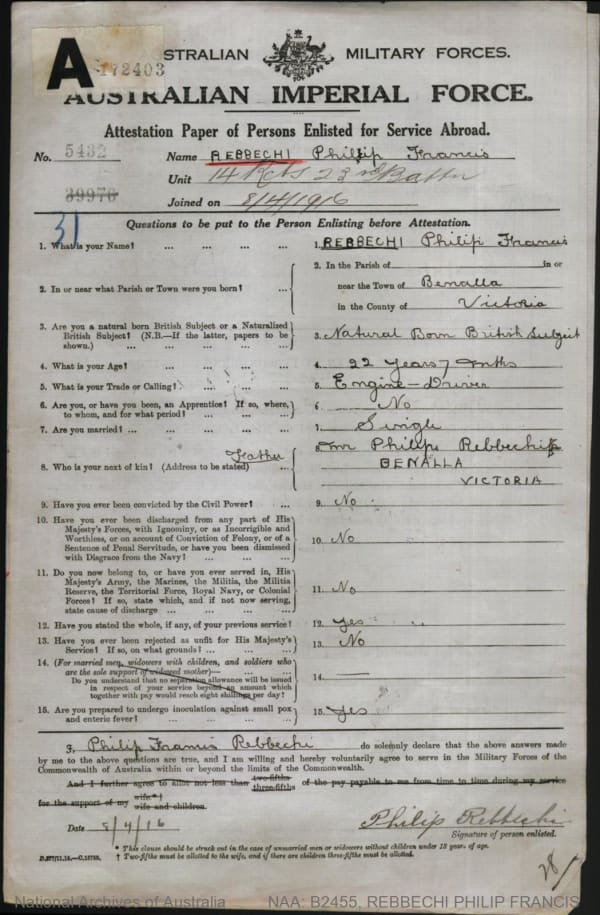 A
172403
STRALIAN MILITARY FORCES.
AUSTRALIAN IMPERIAL FORCE.
Attestation Paper of Persons Enlisted for Service Abroad.
No. 5432 Name REBBECHI Philip Francis
Unit 14 Rets 23rd Battn
39976 Joined on 8/4/1916
31
Questions to be put to the Person Enlisting before Attestation.
1. What is your Name? ... ... ... ... 1. REBBECHI Philip Francis
2. In or near what Parish or Town were you born? ... 2. In the Parish of in or
near the Town of Benalla
in the County of Victoria
3. Are you a natural born British Subject or a Naturalized
British Subject? (N.B.—If the latter, papers to be
shown.) ... ... ... ... 3. Natural Born British Subject
4. What is your Age? ... ... ... ... 4. 22 years 7 mths
5. What is your Trade or Calling? ... ... ... 5. Engine-Driver
6. Are you, or have you been, an Apprentice? If so, where,
to whom, and for what period? ... ... ... 6. No
7. Are you married? ... ... ... ... 7. Single
Father
8. Who is your next of kin? (Address to be stated) ... 8. Mr Philip Rebbechi
BENALLA
VICTORIA
9. Have you ever been convicted by the Civil Power? ... 9. No
10. Have you ever been discharged from any part of His
Majesty's Forces, with Ignominy, or as Incorrigible and
Worthless, or on account of Conviction of Felony, or of a
Sentence of Penal Servitude, or have you been dismissed
with Disgrace from the Navy? ... ... ... 10. No
11. Do you now belong to, or have you ever served in, His
Majesty's Army, the Marines, the Militia, the Militia
Reserve, the Territorial Force, Royal Navy, or Colonial
Forces? If so, state which, and if not now serving,
state cause of discharge ... ... ... ... 11. No
12. Have you stated the whole, if any, of your previous service? 12. Yes
13. Have you ever been rejected as unfit for His Majesty's
Service? If so, on what grounds? ... ... ... 13. No
14. (For married men, widowers with children, and soldiers who
are the sole support of widowed mother)—
Do you understand that no separation allowance will be issued
in respect of your service beyond an amount which
together with pay would reach eight shillings per day? 14. —
15. Are you prepared to undergo inoculation against small pox
and enteric fever? ... ... ... ... 15. Yes
I, Philip Francis Rebbechi do solemnly declare that the above answers made
by me to the above questions are true, and I am willing and hereby voluntarily agree to serve in the Military Forces of the
Commonwealth of Australia within or beyond the limits of the Commonwealth.
And I further agree to allot not less than two-fifths three-fifths of the pay payable to me from time to time during my service
for the support of my wife*† wife and children.
Date 8/4/16 Philip Rebbechi
Signature of person enlisted.
* This clause should be struck out in the case of unmarried men or widowers without children under 18 years of age.
† Two-fifths must be allotted to the wife, and if there are children three-fifths must be allotted.
National Archives of Australia NAA: B2455, REBBECHI PHILIP FRANCIS